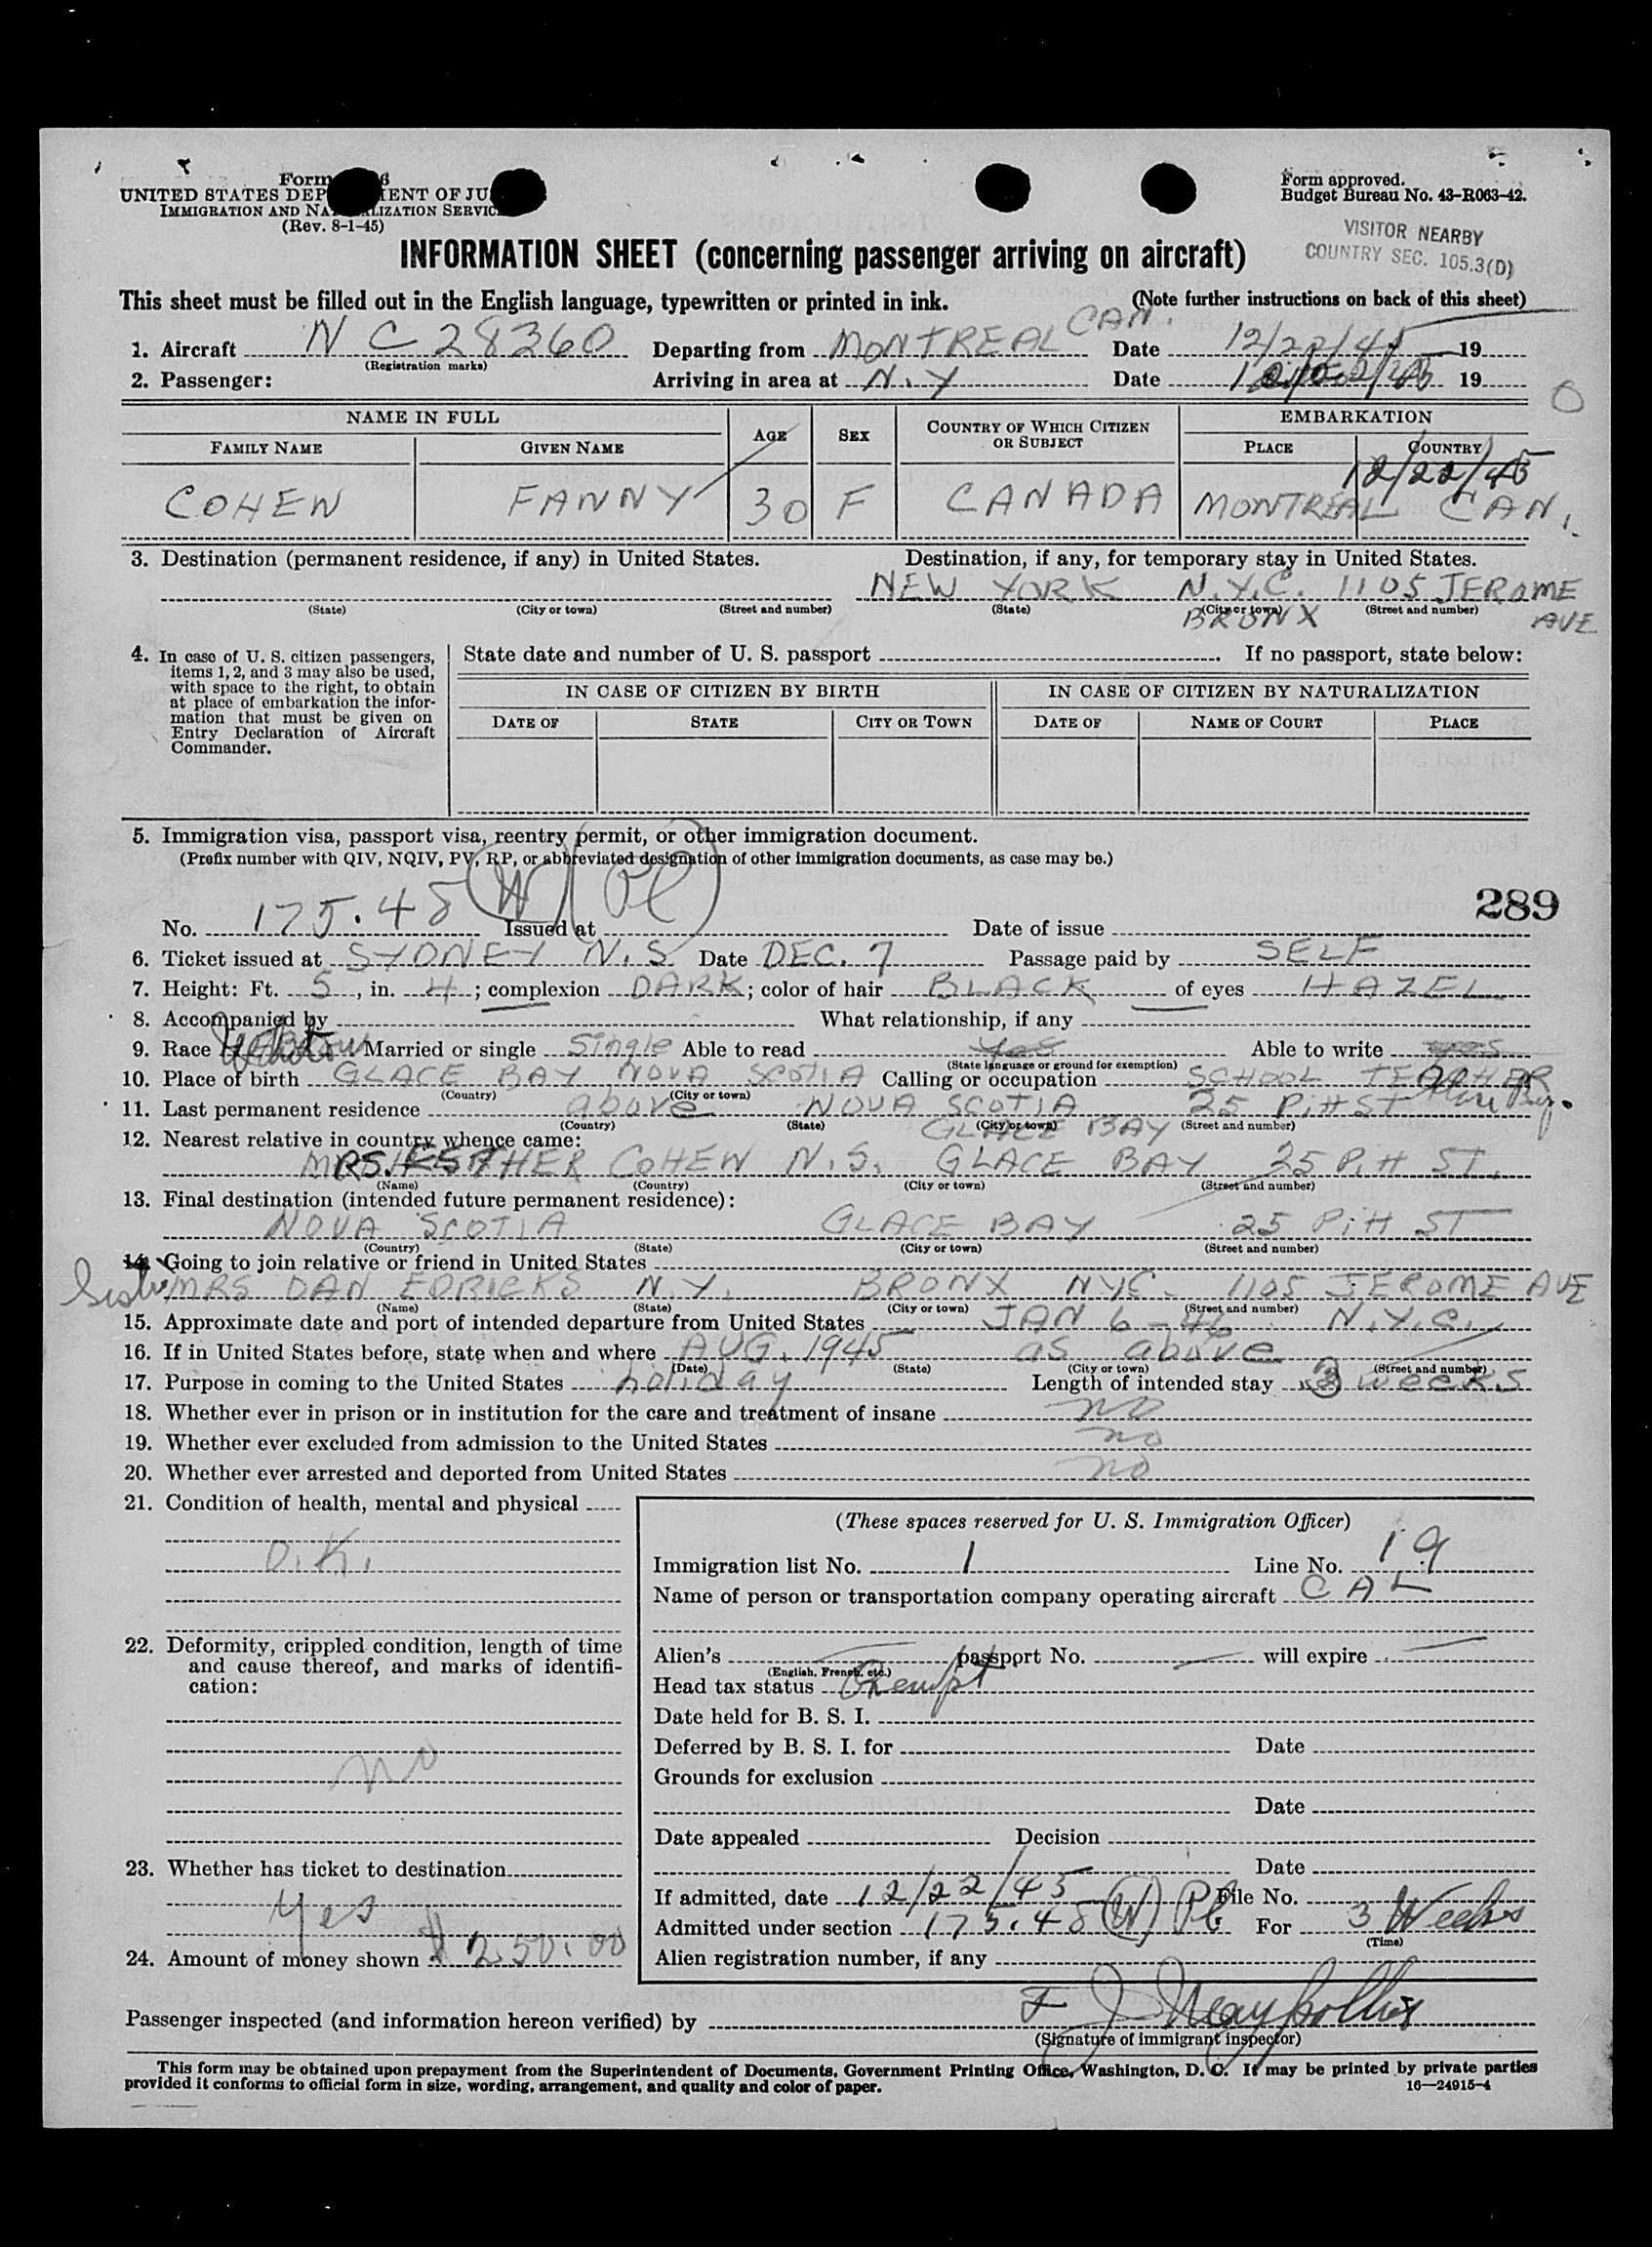 Form
UNITED STATES DEP ENT OF JU
IMMIGRATION AND NA LIZATION SERVIC
(Rev. 8-1-45)
Form approved.
Budget Bureau No. 43-R063-42.
VISITOR NEARBY
COUNTRY SEC. 105.3(D)
INFORMATION SHEET (concerning passenger arriving on aircraft)
This sheet must be filled out in the English language, typewritten or printed in ink. (Note further instructions on back of this sheet)
1. Aircraft NC 28360 Departing from MONTREAL CAN. Date 12/22/45 19
(Registration marks)
2. Passenger: Arriving in area at N.Y Date 19
0
NAME IN FULL AGE SEX COUNTRY OF WHICH CITIZEN OR SUBJECT EMBARKATION
FAMILY NAME GIVEN NAME PLACE COUNTRY
12/22/45
COHEN FANNY 30 F CANADA MONTREAL CAN.
3. Destination (permanent residence, if any) in United States. Destination, if any, for temporary stay in United States.
NEW YORK N.Y.C. 1105 JEROME
(State) (City or town) (Street and number) (State) (City or town) (Street and number)
BRONX AVE
4. In case of U. S. citizen passengers, items 1, 2, and 3 may also be used, with space to the right, to obtain at place of embarkation the information that must be given on Entry Declaration of Aircraft Commander.
State date and number of U. S. passport . If no passport, state below:
IN CASE OF CITIZEN BY BIRTH IN CASE OF CITIZEN BY NATURALIZATION
DATE OF STATE CITY OR TOWN DATE OF NAME OF COURT PLACE
5. Immigration visa, passport visa, reentry permit, or other immigration document.
(Prefix number with QIV, NQIV, PV, RP, or abbreviated designation of other immigration documents, as case may be.)
289
No. 175.48 (W) Issued at Date of issue
6. Ticket issued at SYDNEY N.S. Date DEC. 7 Passage paid by SELF
7. Height: Ft. 5, in. 4; complexion DARK; color of hair BLACK of eyes HAZEL
8. Accompanied by What relationship, if any
9. Race Married or single Single Able to read yes Able to write yes
(State language or ground for exemption)
10. Place of birth GLACE BAY NOVA SCOTIA Calling or occupation SCHOOL TEACHER
(Country) (City or town)
11. Last permanent residence above NOVA SCOTIA 25 Pitt ST
(Country) (State) (City or town) (Street and number)
GLACE BAY
12. Nearest relative in country whence came:
MRS. ESTHER COHEN N.S. GLACE BAY 25 Pitt ST.
(Name) (Country) (City or town) (Street and number)
13. Final destination (intended future permanent residence):
NOVA SCOTIA GLACE BAY 25 Pitt ST
(Country) (State) (City or town) (Street and number)
14. Going to join relative or friend in United States
Sister MRS DAN EDRICKS N.Y. BRONX NYC. 1105 JEROME AVE
(Name) (State) (City or town) (Street and number)
15. Approximate date and port of intended departure from United States JAN 6-46 N.Y.C.
16. If in United States before, state when and where AUG. 1945 as above
(Date) (State) (City or town) (Street and number)
17. Purpose in coming to the United States holiday Length of intended stay 3 weeks
18. Whether ever in prison or in institution for the care and treatment of insane no
19. Whether ever excluded from admission to the United States no
20. Whether ever arrested and deported from United States no
21. Condition of health, mental and physical
O.K.
22. Deformity, crippled condition, length of time and cause thereof, and marks of identification:
no
23. Whether has ticket to destination
yes
24. Amount of money shown $250.00
(These spaces reserved for U. S. Immigration Officer)
Immigration list No. 1 Line No. 19
Name of person or transportation company operating aircraft CAL
Alien's passport No. — will expire —
(English, French, etc.)
Head tax status Exempt
Date held for B. S. I.
Deferred by B. S. I. for Date
Grounds for exclusion
Date
Date appealed Decision
Date
If admitted, date 12/22/45 File No.
Admitted under section 175.48 (W) For 3 Weeks
(Time)
Alien registration number, if any
Passenger inspected (and information hereon verified) by
(Signature of immigrant inspector)
This form may be obtained upon prepayment from the Superintendent of Documents, Government Printing Office, Washington, D. C. It may be printed by private parties
provided it conforms to official form in size, wording, arrangement, and quality and color of paper. 16—24915-4